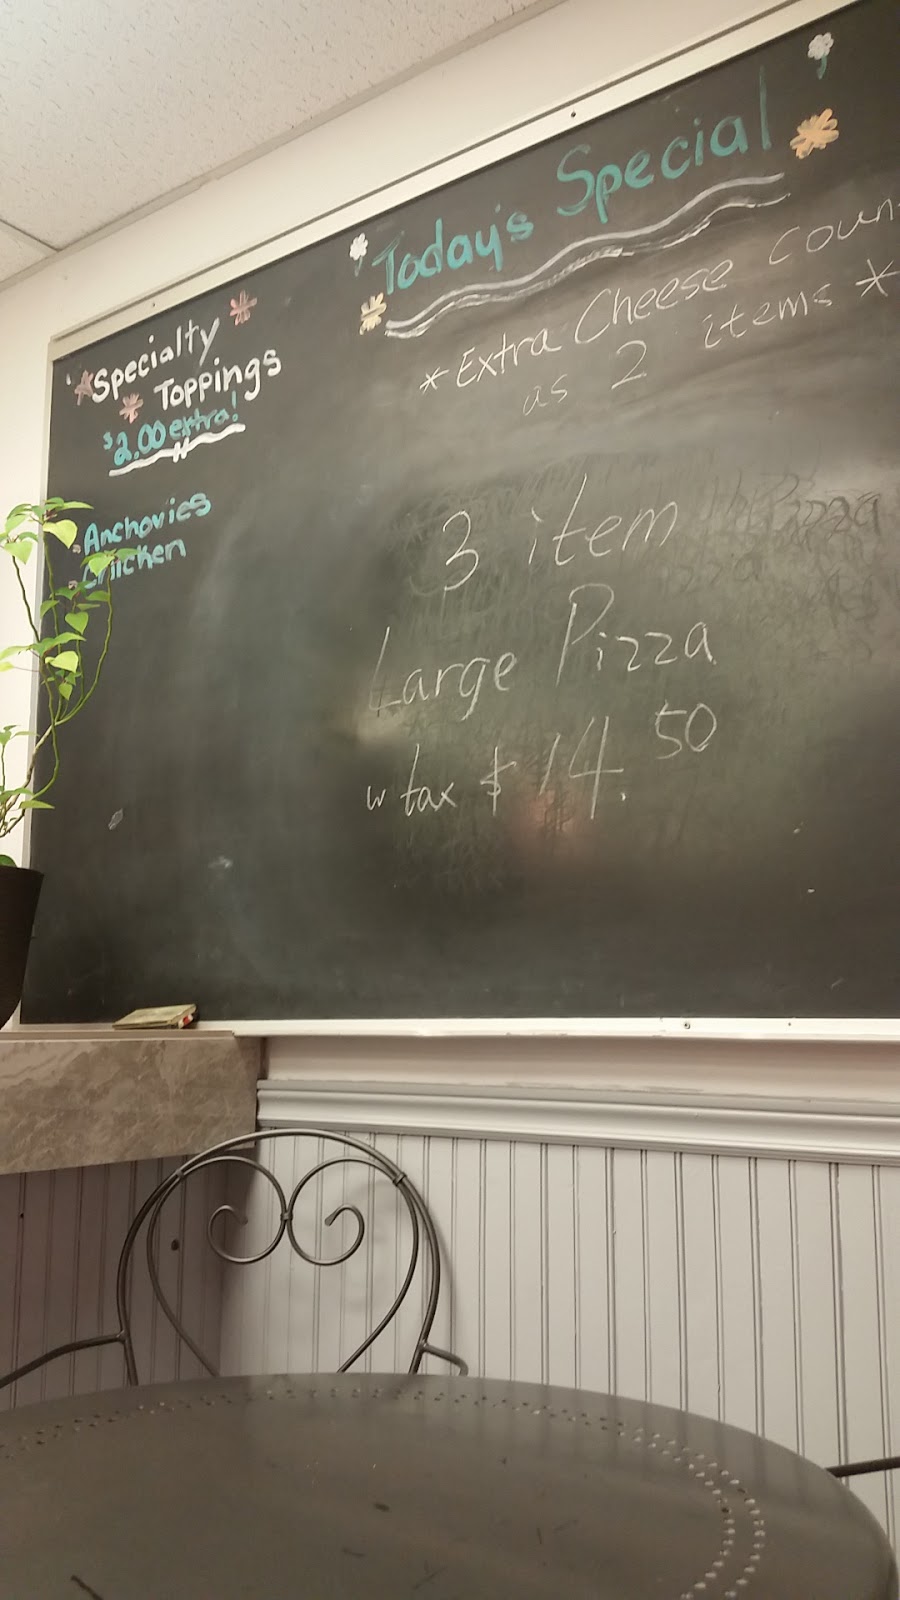 Specialty
Toppings
$2.00 extra!
- Anchovies
- Chicken
Today's Special
*Extra Cheese coun
as 2 items *
3 item
Large Pizza
w tax $14.50